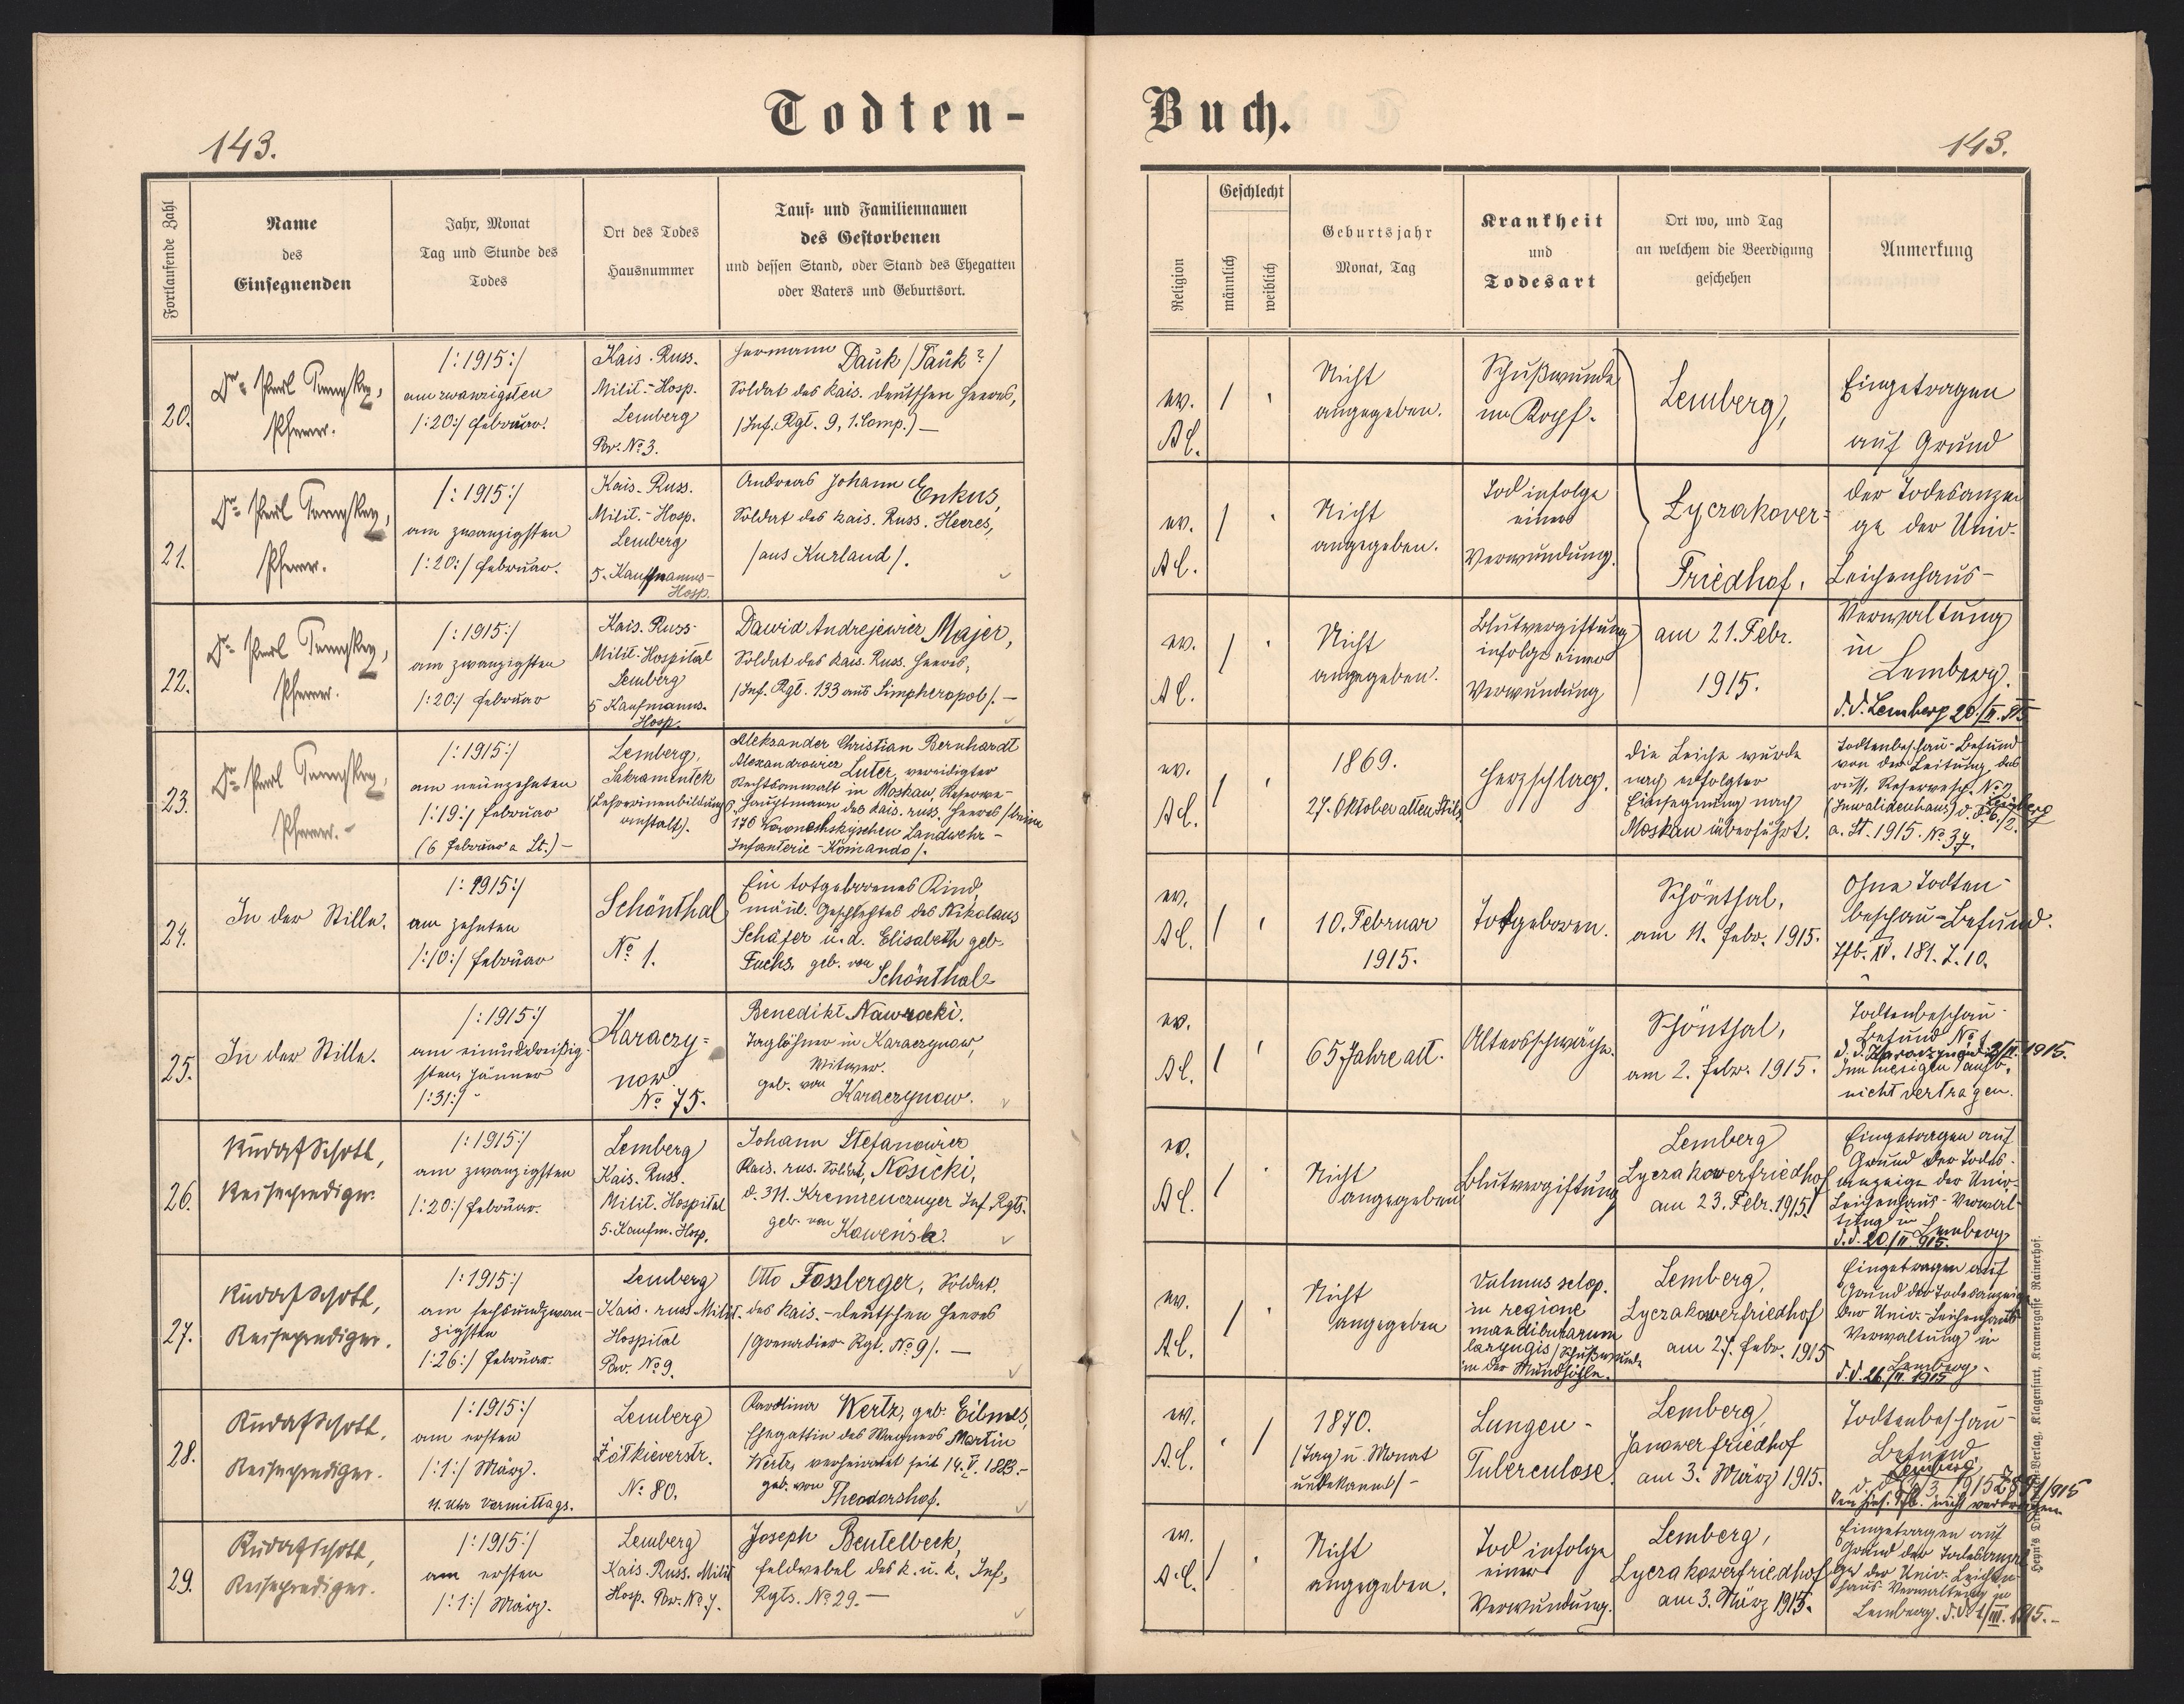 Todten-
Buch.
143.
143.
Fortlaufende Zahl
Name
des
Einsegnenden
Jahr, Monat
Tag und Stunde des
Todes
Ort des Todes
Hausnummer
Tauf- und Familiennamen
des Gestorbenen
und dessen Stand, oder Stand des Ehegatten
oder Vaters und Geburtsort.
Religion
Geschlecht
männlich
weiblich
Geburtsjahr
Monat, Tag
Krankheit
und
Todesart
Ort wo, und Tag
an welchem die Beerdigung
geschehen
Anmerkung
20.
Pfarrer.
/:1915:/
am zwanzigsten
/:20:/ Februar.
Kais. Russ.
Milit.-Hosp.
Lemberg
Pav. No 3.
Hermann Dauk /Tauk?/
Soldat des Kais. deutschen Heeres,
/Inf. Rgt. 9, 1. Comp./ —
ev.
A.C.
/
Nicht
angegeben.
Schußwunde
im Kopf.
Lemberg,
Eingetragen
auf Grund
21.
Pfarrer.
/:1915:/
am zwanzigsten
/:20:/ Februar.
Kais. Russ.
Milit.-Hosp.
Lemberg
5. Kaufmanns-
Hosp.
Andreas Johann Enkus,
Soldat des kais. Russ. Heeres,
/aus Kurland/.
ev.
A.C.
/
Nicht
angegeben.
Tod infolge
einer
Verwundung.
Lyczakower=
Friedhof,
der Todesanzei
ge der Univ.
Leichenhaus-
22.
Pfarrer.
/:1915:/
am zwanzigsten
/:20:/ Februar
Kais. Russ.
Milit.-Hospital
Lemberg
5 Kaufmanns-
Hosp.
Dawid Andrejewicz Majer,
Soldat des Kais. Russ. Heeres,
/Inf. Rgt. 133 aus Simpheropol/. —
ev.
A.C.
/
Nicht
angegeben.
Blutvergiftung
infolge einer
Verwundung
am 21. Febr.
1915.
Verwaltung
in
Lemberg.
d. d. Lemberg 20./II. 915
23.
Pfarrer.
/:1915:/
am neunzehnten
/:19:/ Februar
(6 Februar a. St.) —
Lemberg,
Sakramentek
(Lehrerinenbildungs
anstalt).
Aleksander Christian Bernhardt
Alexandrowicz Luter, vereidigter
Rechtsanwalt in Moskau, Reserve-
Hauptmann des Kais. russ. Heeres
Landwehr-
Infanterie-Komando/.
ev.
A.C.
/
1869.
27. Oktober alten Stils
Herzschlag.
Die Leiche wurde
nach erfolgter
Einsegnung nach
Moskau überführt.
Todtenbeschau-Befund
von der Leitung des
russ. No 2
(Invalidenhaus) d. d. Lemberg
6./2.
a. St. 1915. No 37.
24.
In der Stille.
/:1915:/
am zehnten
/:10:/ Februar
Schönthal
No 1.
Ein totgeborenes Kind,
männl. Geschlechtes des Nikolaus
Schäfer u. d. Elisabeth geb.
Fuchs, geb. von
Schönthal
ev.
A.C.
/
10. Februar
1915.
Totgeboren.
Schönthal,
am 11. Febr. 1915.
Ohne Todten-
beschau-Befund.
Tfb. IV. 181. Z. 10.
25.
In der Stille.
/:1915:/
am einunddreißig-
sten, Jänner
/:31:/
Karaczy=
now
No 75.
Benedikt Nawrocki.
Taglöhner in Karaczynow,
Witwer.
geb. von
Karaczynow.
ev.
A.C.
/
65 Jahre alt.
Altersschwäche.
Schönthal,
am 2. Febr. 1915.
Todtenbeschau-
Befund No 1
d. d. Karaczynow 2/II. 1915.
Im hiesigen Taufb.
nicht vertragen.
26.
Rudolf Schott,
Reiseprediger.
/:1915:/
am zwanzigsten
/:20:/ Februar.
Lemberg
Kais. Russ.
Milit. Hospital
5. Kaufm. Hosp.
Johann Stefanowicz
Kais. rus. Soldat, Nosicki,
d. 311. Kremenczuger Inf. Rgts.
geb. von
ev.
A.C.
/
Nicht
angegeben
Blutvergiftung
Lemberg
Lyczakowerfriedhof
am 23. Febr. 1915.
Eingetragen auf
Grund der Todes-
anzeige der Univ.
Leichenhaus-Verwal-
tung in Lemberg
d. d. 20/II 915.
27.
Rudolf Schott,
Reiseprediger.
/:1915:/
am sechsundzwan-
zigsten
/:26:/ Februar.
Lemberg
Kais. russ. Milit.
Hospital
Pav. No 9.
Otto Fossberger, Soldat
des kais.-deutschen Heeres
/Grenadier Rgt. No 9/. —
ev.
A.C.
/
Nicht
angegeben
Vulnus sclop.
in regione
mandibularum
laryngis /Schußwunde
in der Mundhöhle.
Lemberg,
Lyczakowerfriedhof
am 27. Febr. 1915
Eingetragen auf
Grund der Todesanzeige
der Univ.-Leichenhaus
Verwaltung in
Lemberg.
d. d. 26./II. 1915
28.
Rudolf Schott,
Reiseprediger.
/:1915:/
am ersten
/:1:/ März.
11. Uhr Vormittags.
Lemberg
Żółkieverstr.
No 80.
Karolina Wertz, geb. Eilmes,
Ehegattin des Wagners Martin
Wertz, verheiratet seit 14. V. 1883.-
geb. von
Theodorshof.
ev.
A.C.
/
1870.
/Tag u. Monat
unbekannt/ -
Lungen-
Tuberculose.
Lemberg,
Janower friedhof
am 3. März 1915.
Todtenbeschau-
Befund
Lemberg
29.
Rudolf Schott,
Reiseprediger.
/:1915:/
am ersten
/:1:/ März.
Lemberg
Kais. Russ. Milit
Hosp. Pav. No 7.
Joseph Beutelbeck,
Feldwebel des k. u. k. Inf.
Rgts. No 29. —
ev.
A.C.
/
Nicht
angegeben.
Tod infolge
einer
Verwundung.
Lemberg,
Lyczakowerfriedhof
am 3. März 1915.
Eingetragen auf
Grund der Todesanzei
ge der Univ. Leichen-
haus-Verwaltung in
Lemberg. d. d. 1/III. 1915. -
Verlag, Klagenfurt, Kramergasse Rainerhof.